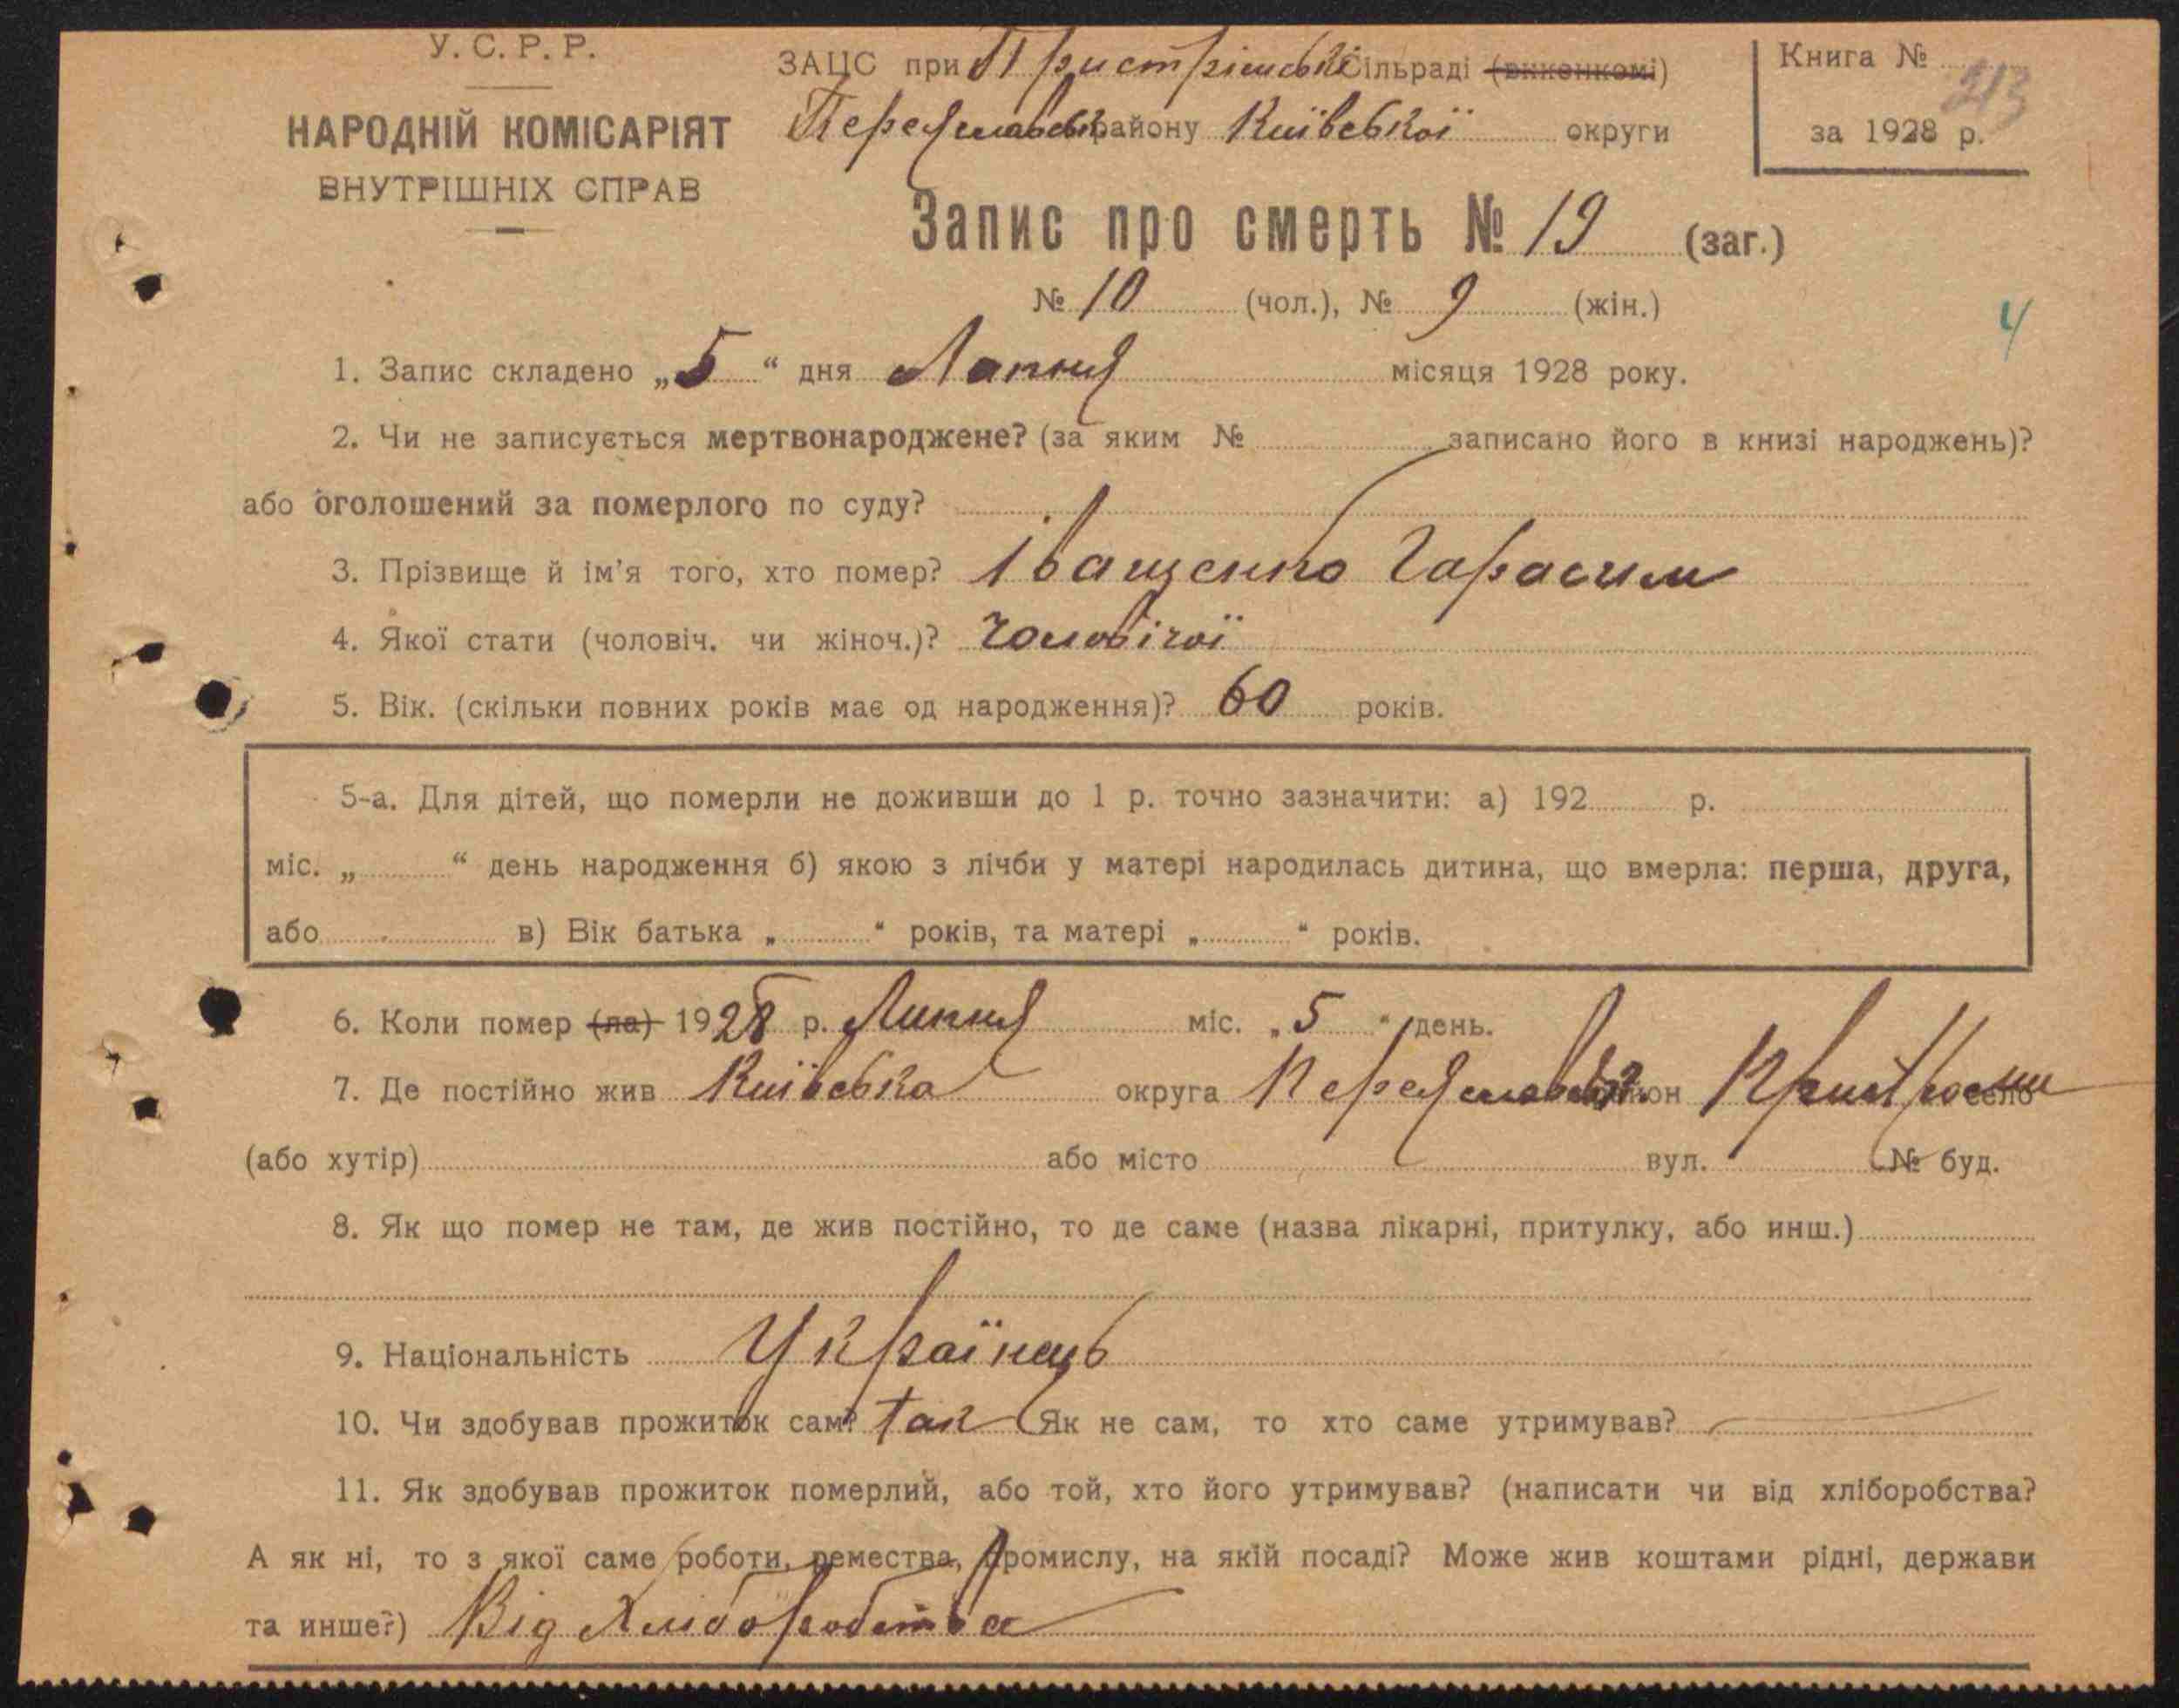 У. С. Р. Р.
НАРОДНІЙ КОМІСАРІЯТ
ВНУТРІШНІХ СПРАВ
ЗАЦС при Пристрімській Сільраді (виконкомі)
Переяславськ району Київської округи
Книга № 213
за 1928 р.
Запис про смерть № 19 (заг.)
№ 10 (чол.), № 9 (жін.)
4
1. Запис складено „5“ дня Липня місяця 1928 року.
2. Чи не записується мертвонароджене? (за яким № записано його в книзі народжень)?
або оголошений за померлого по суду?
3. Прізвище й ім'я того, хто помер? Іващенко Гарасим
4. Якої стати (чоловіч. чи жіноч.)? чоловічої
5. Вік. (скільки повних років має од народження)? 60 років.
5-а. Для дітей, що померли не доживши до 1 р. точно зазначити: а) 192 р.
міс. „ “ день народження б) якою з лічби у матері народилась дитина, що вмерла: перша, друга,
або в) Вік батька „ “ років, та матері „ “ років.
6. Коли помер (ла) 1928 р. Липня міс. „5“ день.
7. Де постійно жив Київська округа Переяславськ. район село
(або хутір) або місто вул. № буд.
8. Як що помер не там, де жив постійно, то де саме (назва лікарні, притулку, або инш.)
9. Національність Українець
10. Чи здобував прожиток сам? так Як не сам, то хто саме утримував?
11. Як здобував прожиток померлий, або той, хто його утримував? (написати чи від хліборобства?
А як ні, то з якої саме роботи, ремества, промислу, на якій посаді? Може жив коштами рідні, держави
та инше?) Від Хліборобства